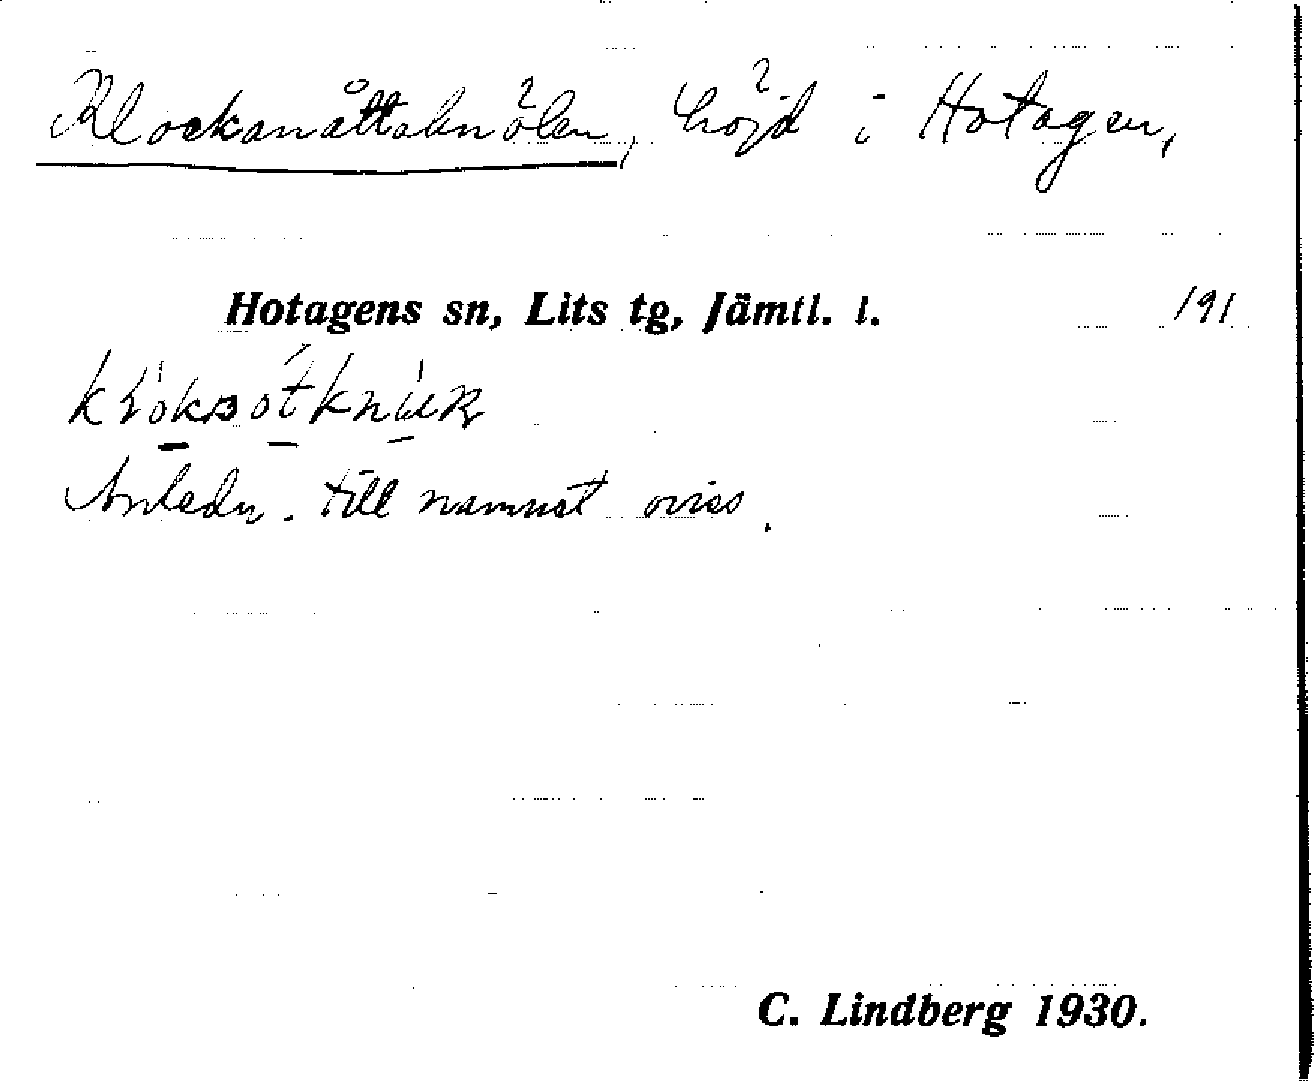 Klockanåttaknölen, höjd i Hotagen,
Hotagens sn, Lits tg, Jämtl. l. 191
Anledn. till namnet oviss.
C. Lindberg 1930.